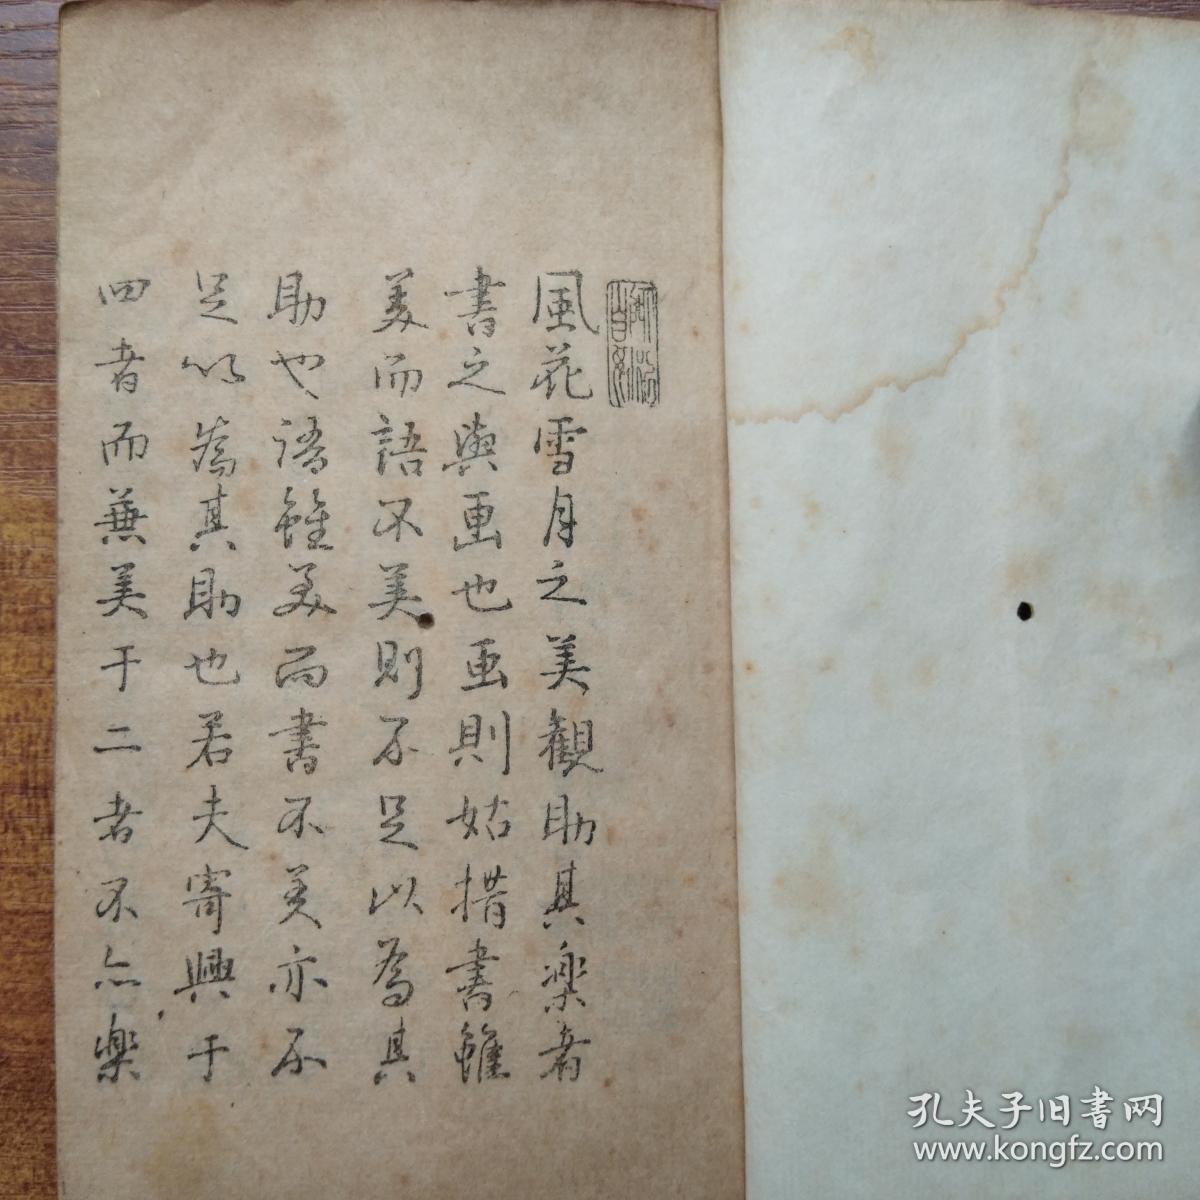 風花雪月之美観助其楽者
書之與画也画則姑措書雖
美而語不美則不足以為其
助也語雖美而書不美亦不
足以為其助也若夫寄興于
四者而兼美于二者不亦楽
孔夫子旧書网
www.kongfz.com